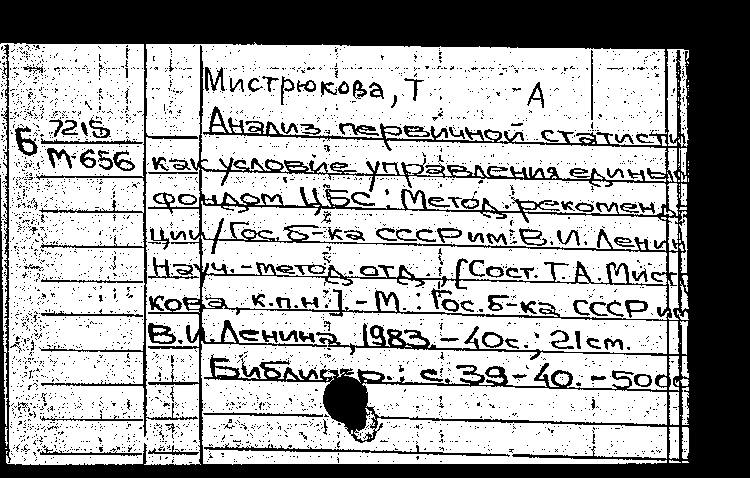 Мистрюкова, Т А
Б 7215
М-656
Анализ первичной статисти
как условие управления едины
фондом ЦБС : Метод. рекоменд
ции / Гос. б-ка СССР им. В.И. Ленин
Науч.-метод. отд. ; [Сост. Т.А. Мист
кова, к.п.н.] - М. : Гос. б-ка СССР им
В.И. Ленина, 1983. - 40с. ; 21 cm.
Библиогр. : с. 39-40. - 5000